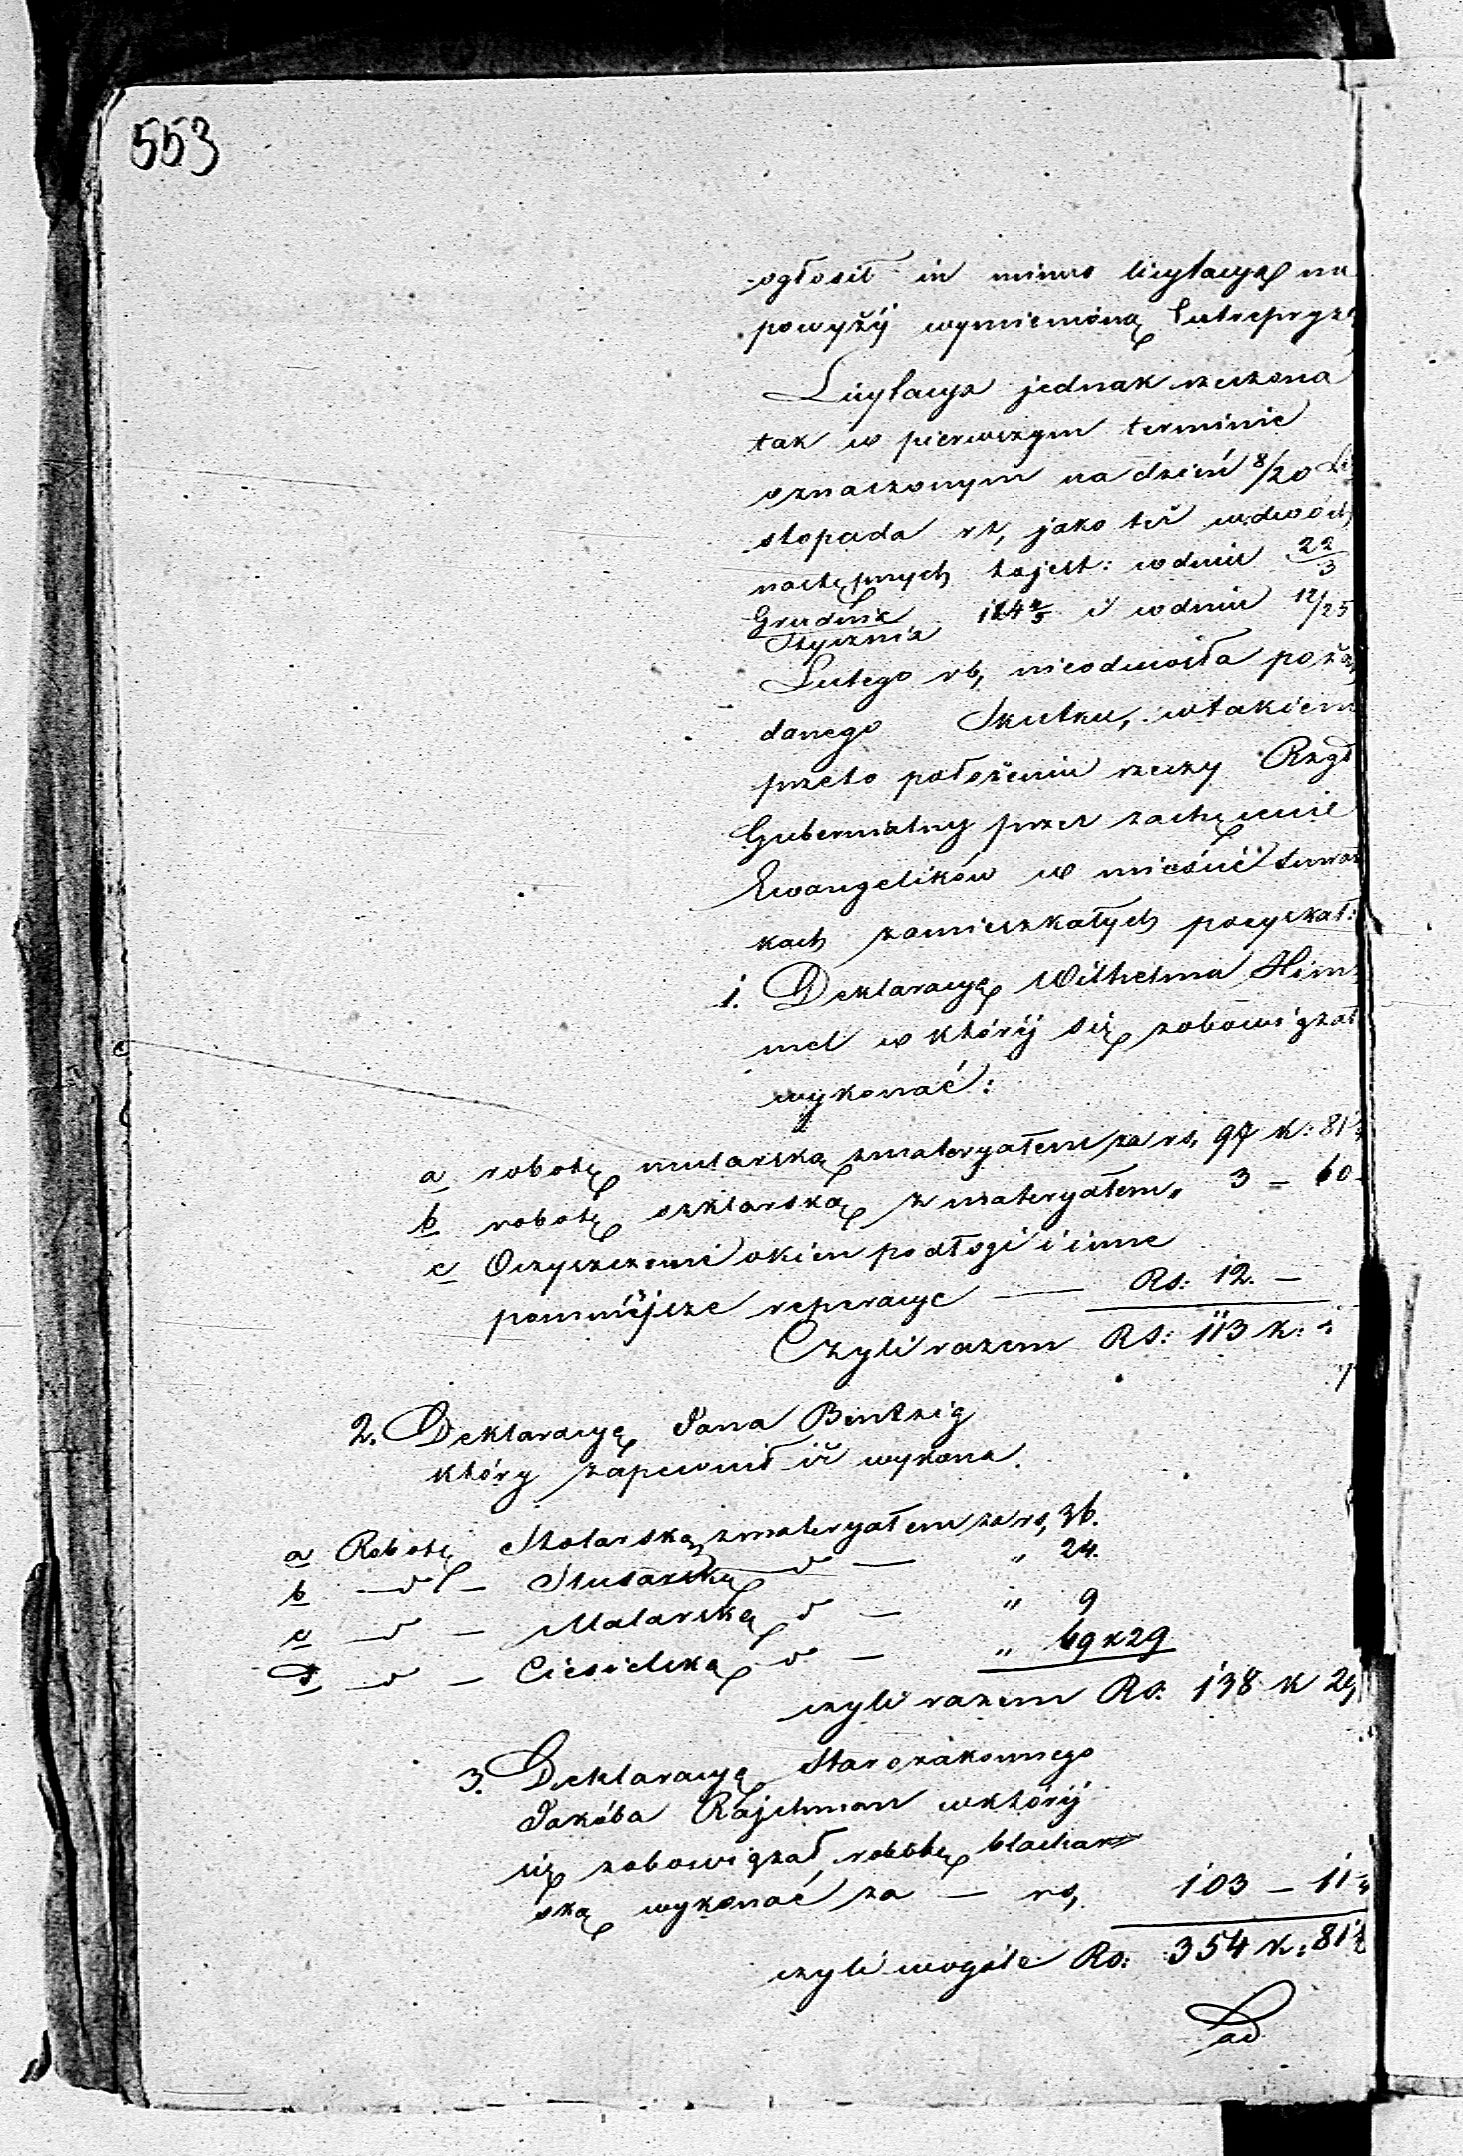 553
ogłosił in minus licytacyą na
powyżéj wymienioną Entrepryz
Licytacya jednak rzeczona
tak w pierwszym terminie
oznaczonym na dzień 8/20 Li
stopada rz, jako też wdwóch
następnych tojest: wdniu 22/3
Grudnia/Stycznia 184 4/5 i wdniu 12/25
Lutego rb, nieodniosła pożą
danego Skutku, wtakiem
przeto położeniu rzeczy Rząd
Gubernialny przez zachęcenie
Ewangelików w mieście Suwał
kach zamieszkałych pozyskał:
1. Deklaracyę Wilhelma Him
mel w któréj się zobowiązał
wykonać:
a robotę mularską zmateryałem za rs, 97 k: 81½
b robotę szklarską z materyałem „ 3 – 60
c Oczyszczenie okien podłogi i inne
pomniéjsze reperacye — Rs: 12. –
Czyli razem Rs: 113 k:
2. Deklaracyę Jana Bentzig
który zapewnił iż wykona.
a Robotę Stolarską zmateryałem za rs, 36.
b — d — Slusarską d — „ 24.
c — d — Malarską d — „ 9
d — d — Ciesielską d — „ 69 k 29
czyli razem Rs: 138 k 29,
3. Deklaracyę Starozakonnego
Jakóba Rajchman wktóréj
się zobowiązał robotę blachar
ską wykonać za — rs, 103 – 11
czyli wogóle Rs: 354 k: 81½
ad